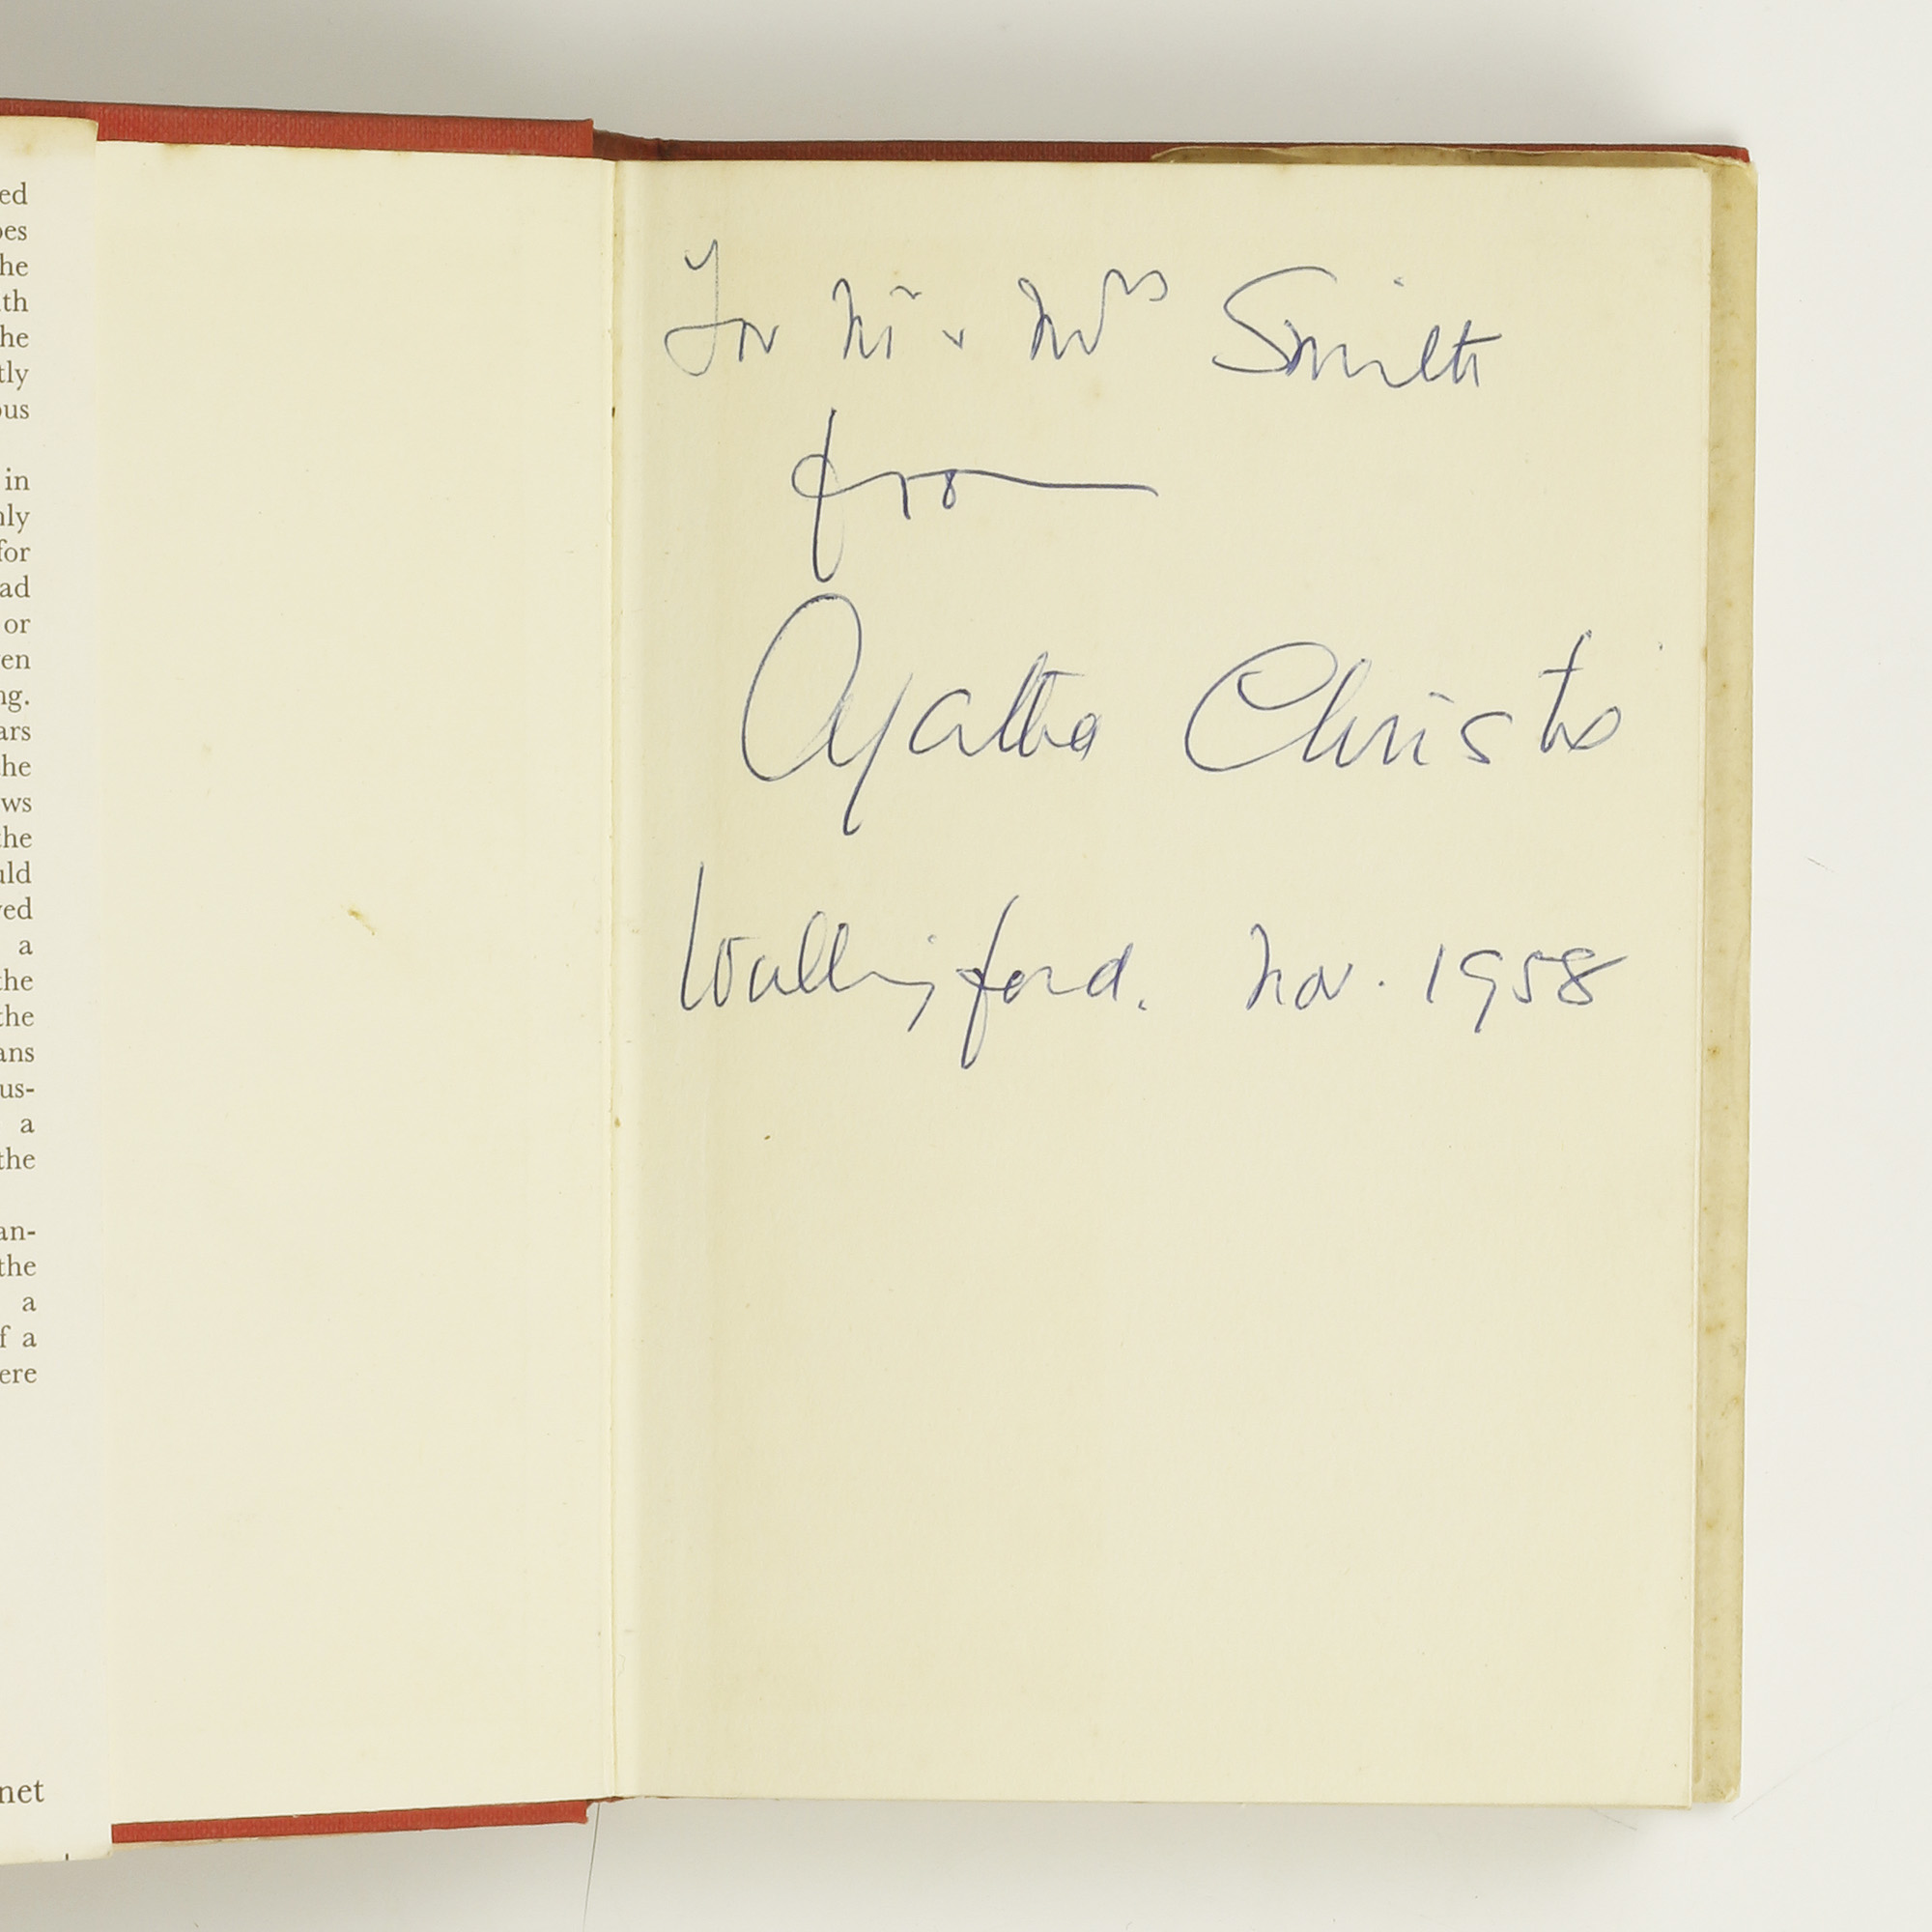 ed
oes
he
th
he
tly
ous
in
nly
for
ad
or
en
ng.
ars
he
ws
the
uld
ved
a
the
the
ans
us-
a
the
an-
the
a
f a
ere
net
For Mr & Mrs Smith
from
Agatha Christie
Wallingford. Nov. 1958